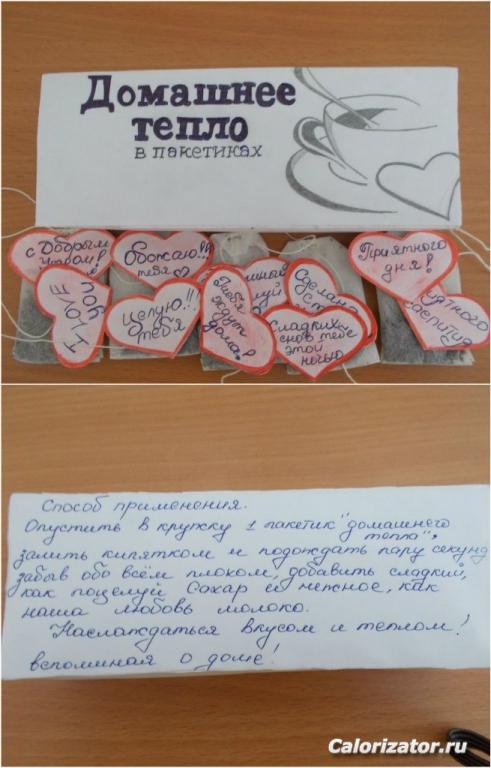 Домашнее
тепло
в пакетиках
с Добрым
утром!
Обожаю!!!
тебя
Приятного
дня!
I LOVE
YOU
Целую!!!
тебя
Тебя
ждут
дома!
Сделано
с
Сладких
снов тебе
этой
ночью
Способ применения.
Опустить в кружку 1 пакетик "домашнего
тепла",
залить кипятком и подождать пару секунд
забыв обо всём плохом, добавить сладкий,
как поцелуй сахар и нежное, как
наша любовь молоко.
Наслаждаться вкусом и теплом!
вспоминая о доме!
Calorizator.ru